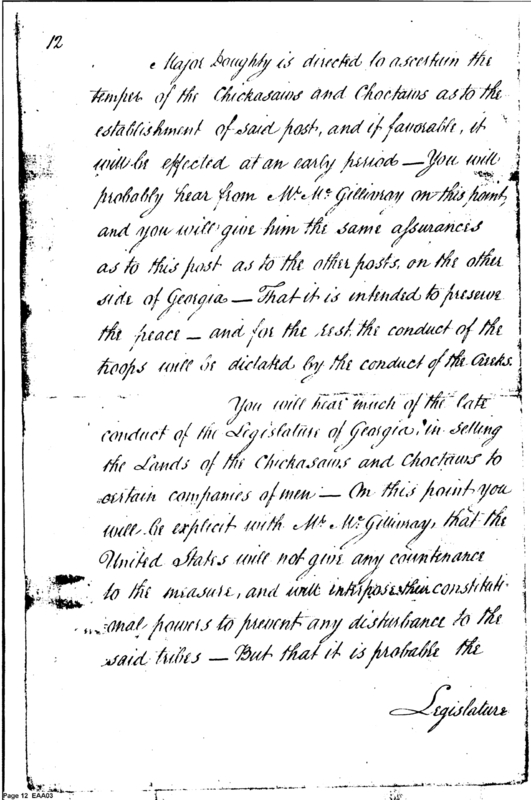 12
Major Doughty is directed to ascertain the
temper of the Chickasaws and Choctaws as to the
establishment of said post, and if favorable, it
will be effected at an early period — You will
probably hear from Mr. Mc Gillivray on this point
and you will give him the same assurances
as to this post as to the other posts, on the other
side of Georgia — That it is intended to preserve
the peace — and for the rest, the conduct of the
troops will be dictated by the conduct of the Creeks.
You will hear much of the late
conduct of the Legislature of Georgia, in selling
the Lands of the Chickasaws and Choctaws to
certain companies of men — On this point you
will be explicit with Mr. Mc Gillivray, that the
United States will not give any countenance
to the measure, and will interpose their constituti-
onal powers to prevent any disturbance to the
said tribes — But that it is probable the
Legislature
Page 12 EAA03